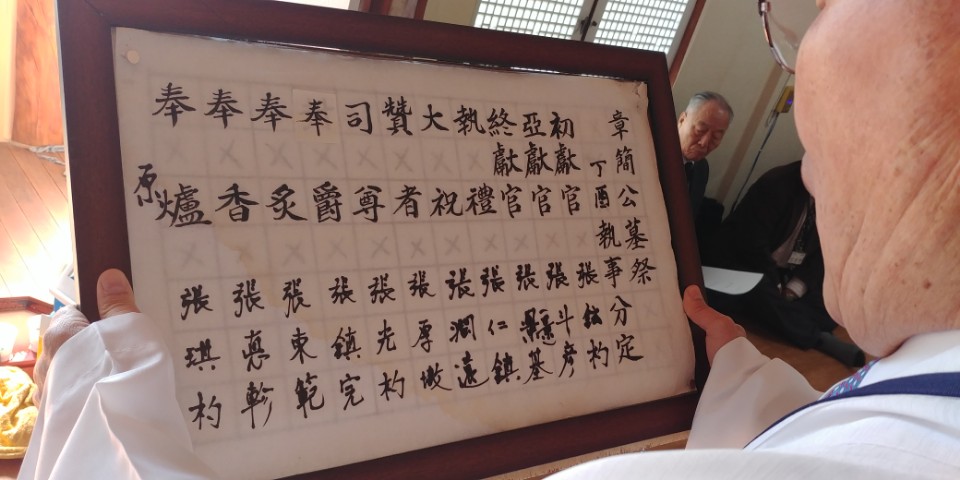 章簡公墓祭
丁酉執事分定
初獻官 張杓
亞獻官 張斗彦
終獻官 張基
執禮 張仁鎮
大祝 張潤遠
贊者 張厚
司尊 張光杓
奉爵 張鎮完
奉炙 張東範
奉香 張軫
奉爐 張琪杓
原